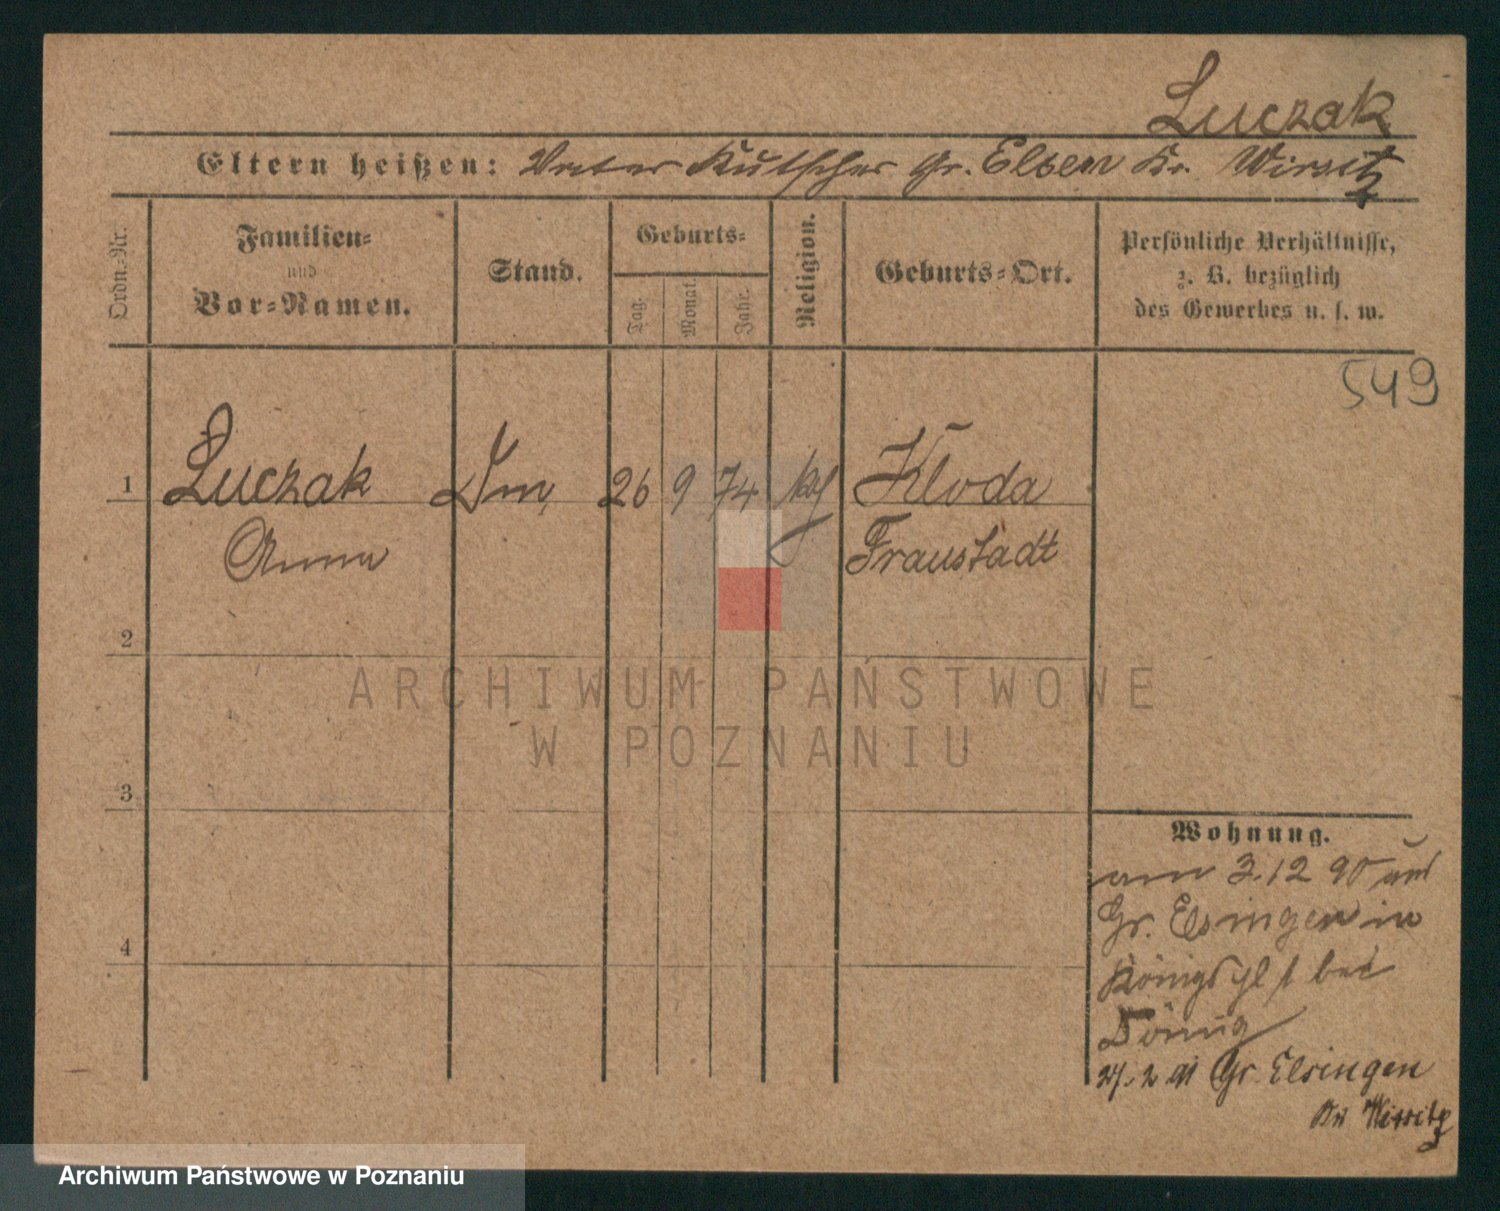 Luczak
Eltern heißen: Vater Kutscher Gr. Elsen Kr. Wirsitz
Ordn.-Nr.
Familien-
und
Vor-Namen.
Stand.
Geburts-
Tag.
Monat.
Jahr.
Religion.
Geburts-Ort.
Persönliche Verhältnisse,
z. B. bezüglich
des Gewerbes u. s. w.
549
1 Luczak 26 9 74 Kloda
Anna Fraustadt
2
3
4
Wohnung.
am 3.12 90 aus
Gr. Elsingen in
bei
27. 2 91 Gr. Elsingen
Kr Wirsitz
ARCHIWUM PAŃSTWOWE
W POZNANIU
Archiwum Państwowe w Poznaniu